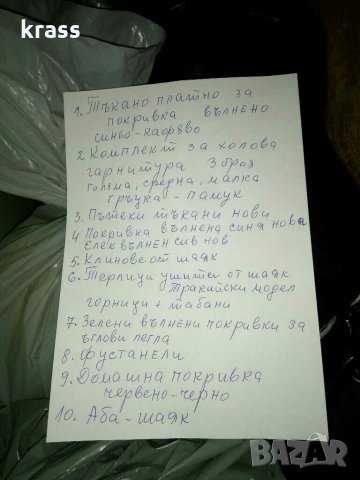 krass
1. Тъкано платно за
покривка вълнено
синьо-кафяво
2. Комплект за холова
гарнитура 3 броя
голяма, средна, малка
гръцка - памук
3. Пътеки тъкани нови
4 Покривка вълнена синя нова
Елек вълнен сив нов
5. Клинове от шаяк
6. Терлици ушити от шаяк
Тракийски модел
горници + табани
7. Зелени вълнени покривки за
ъглови легла
8. Фустанели
9. Домашна покривка
червено-черно
10. Аба-шаяк
BAZAR